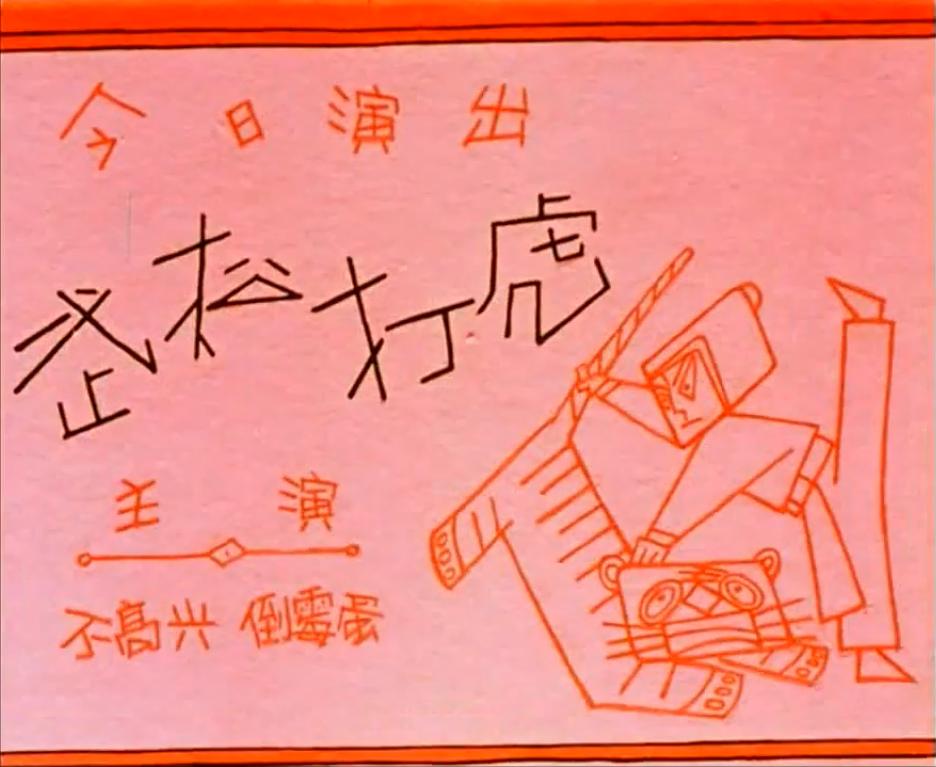 今日演出
武松打虎
主演
不高兴 倒霉蛋